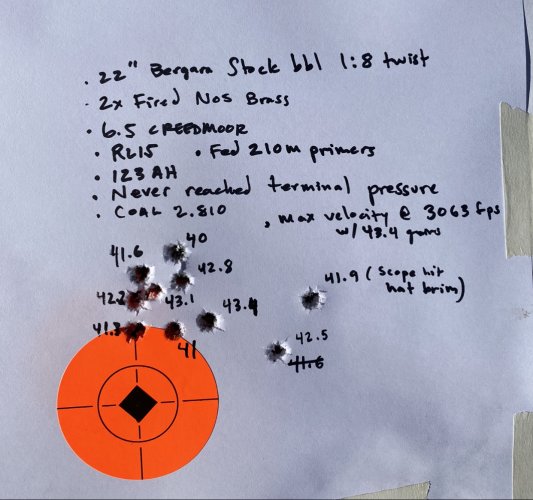 · 22" Bergara Stock bbl 1:8 twist
· 2x Fired Nos Brass
· 6.5 CREEDMOOR
· RL15 · Fed 210M primers
· 123 AH
· Never reached terminal pressure
· COAL 2.810 · max velocity @ 3063 fps
w/ 43.4 grns
41.6 40
42.8
41.9 (Scope hit
hat brim)
42.2 43.1 43.4
41.3 41
42.5
41.6